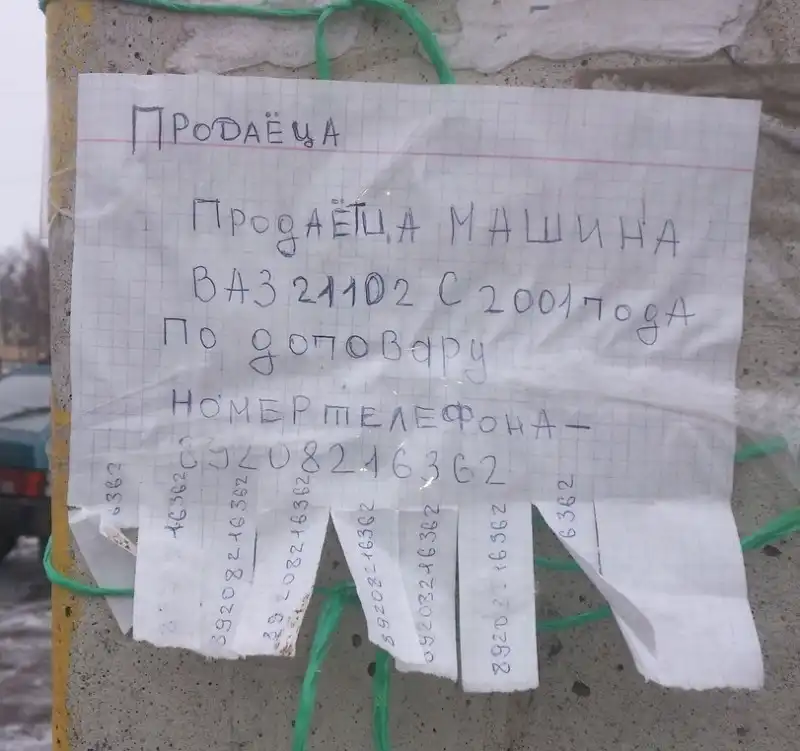 ПРОДАЁЦА
ПРОДАЁТЦА МАШИНА
ВАЗ 21102 С 2001 года
По договару
НОМЕР ТЕЛЕФОНА –
89208216362
6362
16362
89208216362
89208216362
89208216362
89208216362
89208216362
6362